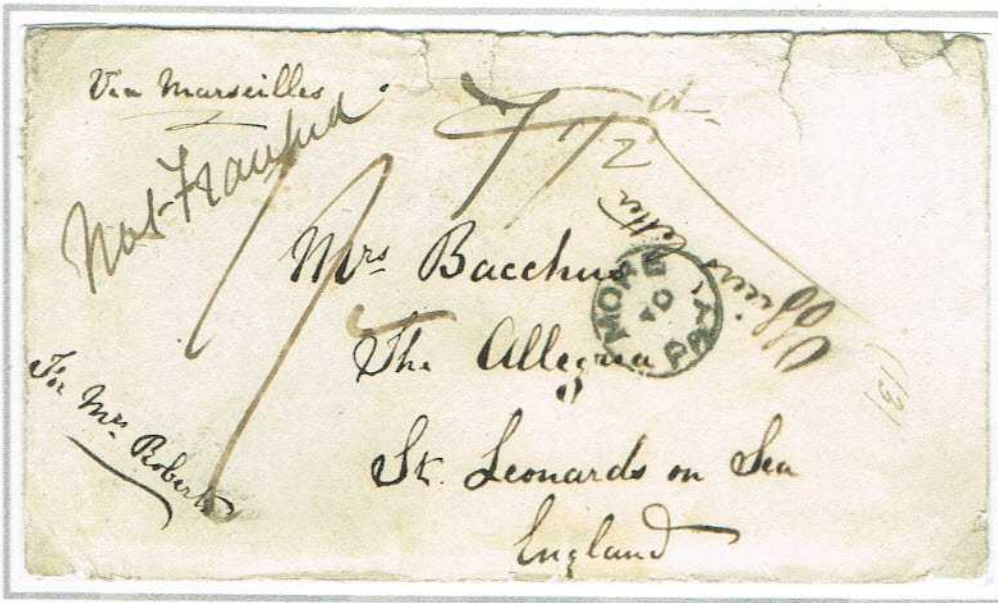 Via Marseilles
Not Franked
1/2
Officers letter
Mrs Bacchus
The Allegria
St. Leonards on Sea
England
For Mrs Roberts
MORE TO PAY
(13)